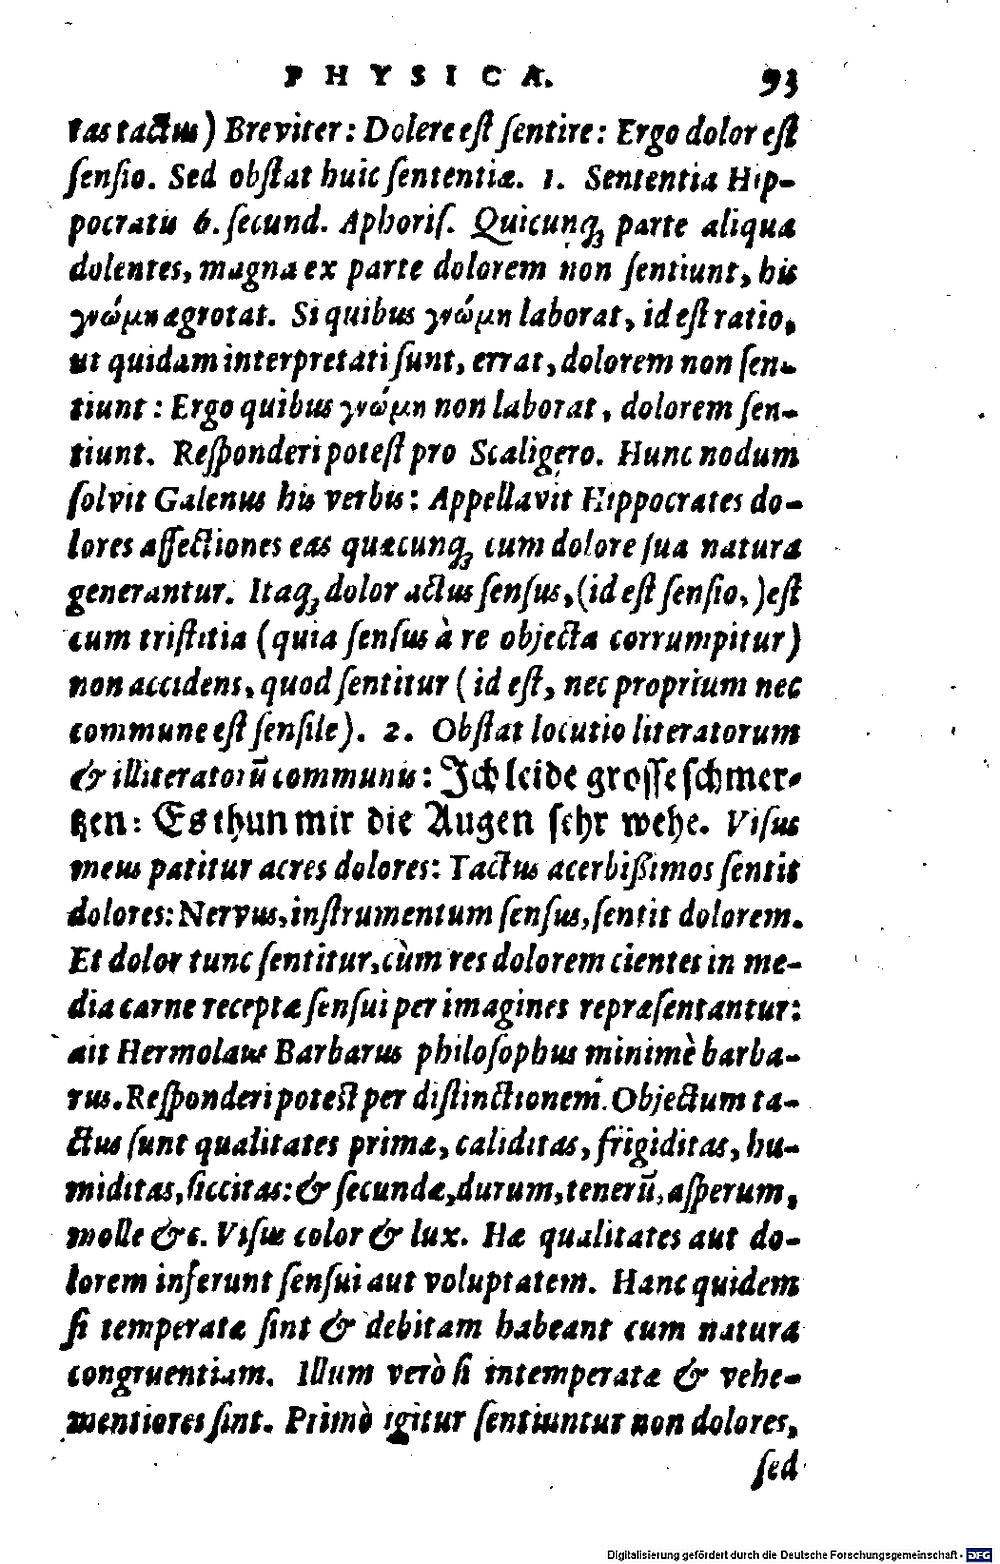 PHYSICA. 93
tas tactus) Breviter: Dolere est sentire: Ergo dolor est
sensio. Sed obstat huic sententiæ. 1. Sententia Hip-
pocratis 6. secund. Aphoris. Quicunq; parte aliqua
dolentes, magna ex parte dolorem non sentiunt, his
γνώμη ægrotat. Si quibus γνώμη laborat, id est ratio,
ut quidam interpretati sunt, errat, dolorem non sen-
tiunt: Ergo quibus γνώμη non laborat, dolorem sen-
tiunt. Responderi potest pro Scaligero. Hunc nodum
solvit Galenus his verbis: Appellavit Hippocrates do-
lores affectiones eas quæcunq; cum dolore sua natura
generantur. Itaq; dolor actus sensus, (id est sensio,) est
cum tristitia (quia sensus à re objecta corrumpitur)
non accidens, quod sentitur (id est, nec proprium nec
commune est sensile). 2. Obstat locutio literatorum
& illiteratorũ communis: Ich leide grosse schmer-
tzen: Es thun mir die Augen sehr wehe. Visus
meus patitur acres dolores: Tactus acerbißimos sentit
dolores: Nervus, instrumentum sensus, sentit dolorem.
Et dolor tunc sentitur, cùm res dolorem cientes in me-
dia carne receptæ sensui per imagines repræsentantur:
ait Hermolaus Barbarus philosophus minimè barba-
rus. Responderi potest per distinctionem. Objectum ta-
ctus sunt qualitates primæ, caliditas, frigiditas, hu-
miditas, siccitas: & secundæ, durum, tenerũ, asperum,
molle &c. Visus color & lux. Hæ qualitates aut do-
lorem inferunt sensui aut voluptatem. Hanc quidem
si temperatæ sint & debitam habeant cum natura
congruentiam. Illum verò si intemperatæ & vehe-
mentiores sint. Primò igitur sentiuntur non dolores,
sed
Digitalisierung gefördert durch die Deutsche Forschungsgemeinschaft - DFG